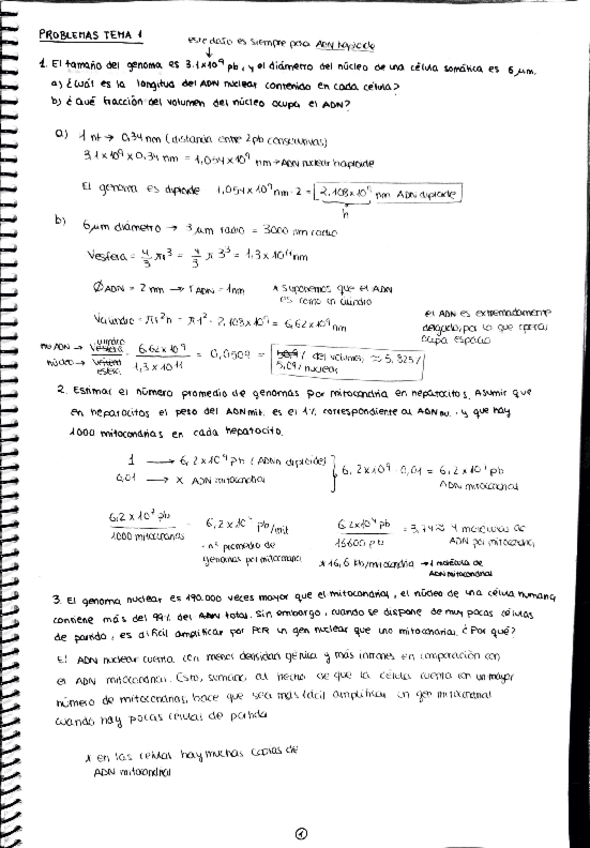 PROBLEMAS TEMA 1
este dato es siempre para ADN haploide
1. El tamaño del genoma es 3.1x10⁹ pb, y el diámetro del núcleo de una célula somática es 6 μm.
a) ¿Cuál es la longitud del ADN nuclear contenido en cada célula?
b) ¿Qué fracción del volumen del núcleo ocupa el ADN?
a) 1 nt → 0,34 nm (distancia entre 2pb consecutivas)
3,1x10⁹ x 0,34 nm = 1,054x10⁹ nm → ADN nuclear haploide
El genoma es diploide 1,054x10⁹ nm · 2 = 2,108x10⁹ nm ADN diploide
h
b) 6 μm diámetro → 3 μm radio = 3000 nm radio
Vesfera = 4/3 πr³ = 4/3 π 3³ = 1,3 x 10¹¹ nm
Ø ADN = 2 nm → r ADN = 1nm
* suponemos que el ADN
es como un cilindro
Vcilindro = πr²h = π1² · 2,108x10⁹ = 6,62x10⁹ nm
el ADN es extremadamente
delgado, por lo que apenas
ocupa espacio
6,62x10⁹ / 1,3x10¹¹ = 0,0509 = del volumen
5,09% nuclear
2. Estimar el número promedio de genomas por mitocondria en hepatocitos. Asumir que
en hepatocitos el peso del ADN mit. es el 1% correspondiente al ADN nu. y que hay
1000 mitocondrias en cada hepatocito.
1 → 6,2x10⁹ pb (ADNn diploide)
0,01 → x ADN mitocondrial
6,2x10⁹ · 0,01 = 6,2x10⁷ pb
ADN mitocondrial
6,2x10⁷ pb / 1000 mitocondrias = 6,2x10⁴ pb/mit
= nº promedio de
genomas por mitocondria
6,2x10⁴ pb / 16600 pb = 3,74 ≈ 4 moléculas de
ADN por mitocondria
* 16,6 kb/mitocondria → 1 molécula de
ADN mitocondrial
3. El genoma nuclear es 190.000 veces mayor que el mitocondrial, el núcleo de una célula humana
contiene más del 99% del ADN total. Sin embargo, cuando se dispone de muy pocas células
de partida, es difícil amplificar por PCR un gen nuclear que uno mitocondrial. ¿Por qué?
El ADN nuclear cuenta con menor densidad génica y más intrones en comparación con
el ADN mitocondrial. Esto, sumado al hecho de que la célula cuenta con un mayor
número de mitocondrias, hace que sea más fácil amplificar un gen mitocondrial
cuando hay pocas células de partida
* en las células hay muchas copias de
ADN mitocondrial
1